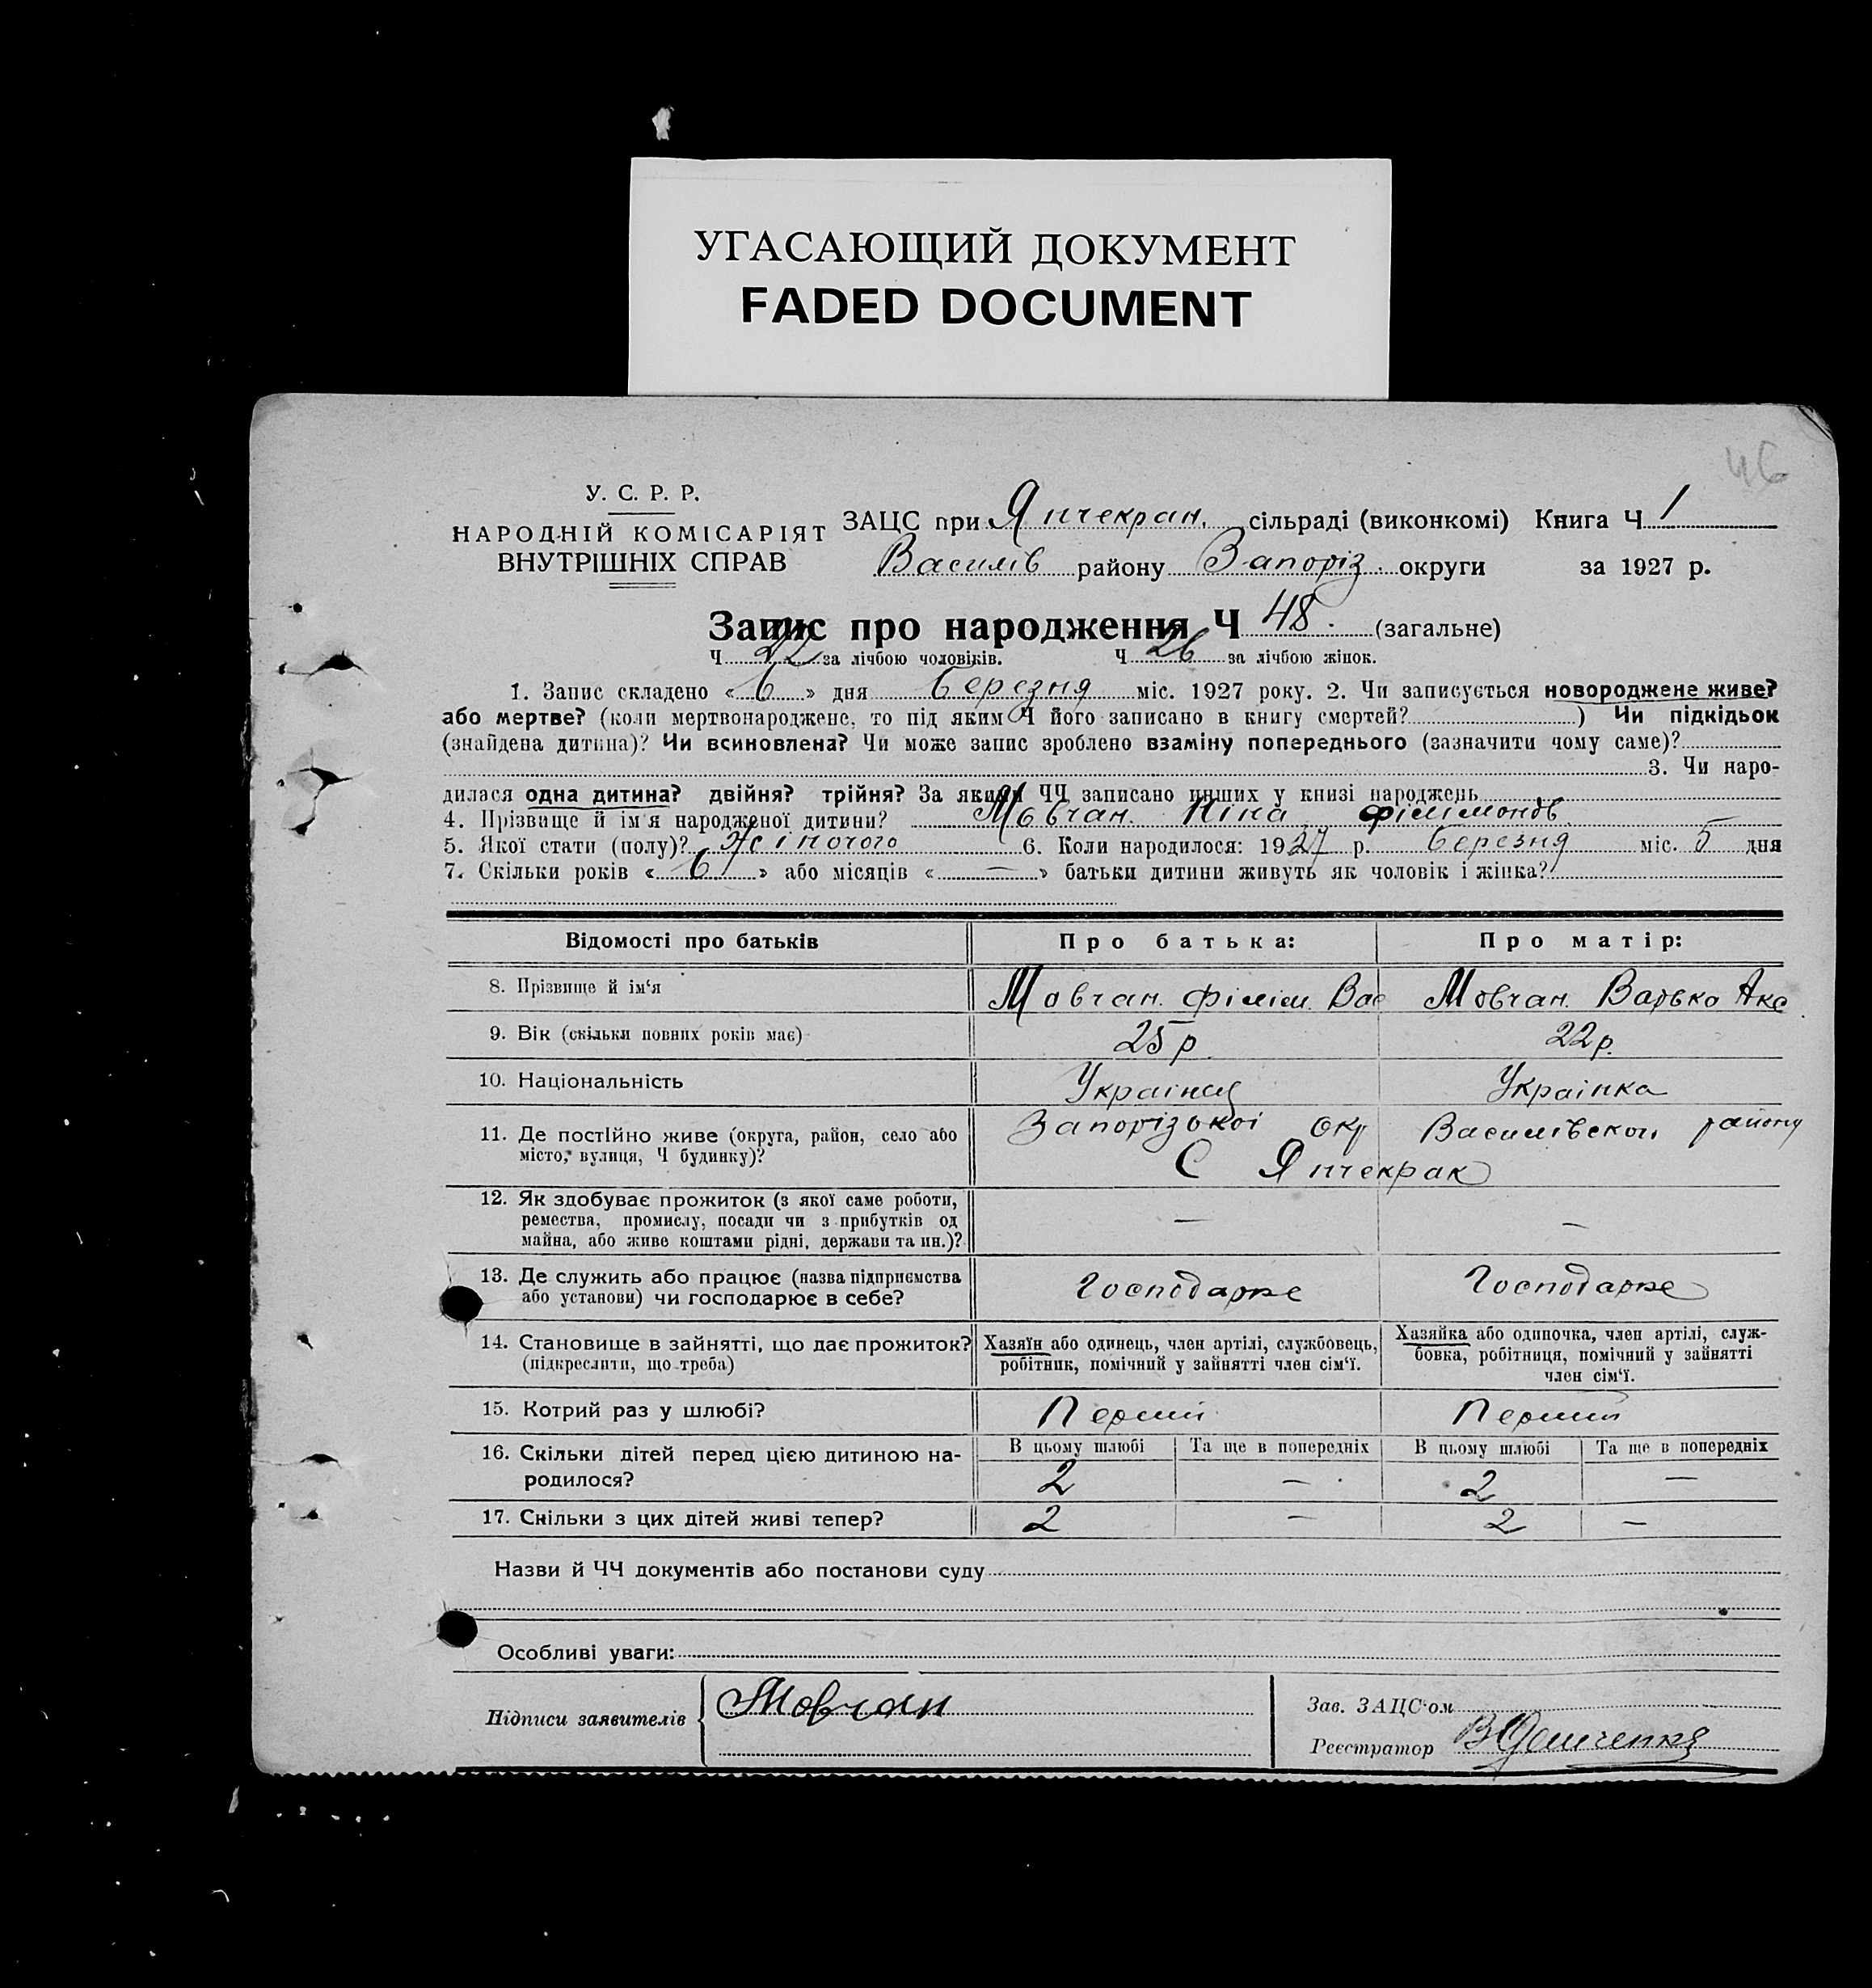 УГАСАЮЩИЙ ДОКУМЕНТ
FADED DOCUMENT
46
У. С. Р. Р.
НАРОДНІЙ КОМІСАРІЯТ
ВНУТРІШНІХ СПРАВ
ЗАЦС при Янчекрак. сільраді (виконкомі) Книга Ч 1
Василів району Запоріз. округи за 1927 р.
Запис про народження Ч 48. (загальне)
Ч 22 за лічбою чоловіків. Ч 26 за лічбою жінок.
1. Запис складено « 6 » дня березня міс. 1927 року. 2. Чи записується новороджене живе?
або мертве? (коли мертвонароджене, то під яким Ч його записано в книгу смертей? ) Чи підкідьок
(знайдена дитина)? Чи всиновлена? Чи може запис зроблено взаміну попереднього (зазначити чому саме)?
3. Чи наро-
дилася одна дитина? двійня? трійня? За якими ЧЧ записано инших у книзі народжень
4. Прізвище й ім'я народженої дитини? Мовчан. Ніна Філімонов.
5. Якої стати (полу)? Жіночого 6. Коли народилося: 1927 р. березня міс. 5 дня
7. Скільки років « 6 » або місяців « — » батьки дитини живуть як чоловік і жінка?
Відомості про батьків Про батька: Про матір:
8. Прізвище й ім'я Мовчан. Філім. Вас Мовчан. Варько Акс
9. Вік (скільки повних років має) 25 р. 22 р.
10. Національність Українец Українка
11. Де постійно живе (округа, район, село або Запорізокоі окр Василівскои району
місто, вулиця, Ч будинку)? С Янчекрак
12. Як здобуває прожиток (з якої саме роботи,
ремества, промислу, посади чи з прибутків од — —
майна, або живе коштами рідні, держави та ин.)?
13. Де служить або працює (назва підприємства Господарже Господарже
або установи) чи господарює в себе?
14. Становище в зайнятті, що дає прожиток? Хазяїн або одинець, член артілі, службовець, Хазяйка або одиночка, член артілі, служ-
(підкреслити, що треба) робітник, помічний у зайнятті член сім'ї. бовка, робітниця, помічний у зайнятті
член сім'ї.
15. Котрий раз у шлюбі? Перший Перший
16. Скільки дітей перед цією дитиною на- В цьому шлюбі Та ще в попередніх В цьому шлюбі Та ще в попередніх
родилося? 2 — 2 —
17. Скільки з цих дітей живі тепер? 2 — 2 —
Назви й ЧЧ документів або постанови суду
Особливі уваги:
Підписи заявителів Мовчан Зав. ЗАЦС·ом
Реєстратор